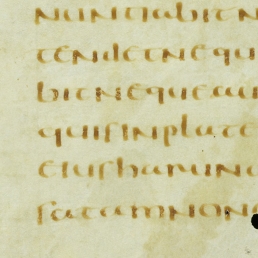 nuntiabit n
tendet nequ
bit neque au
quis in plate
eius harun
satam non